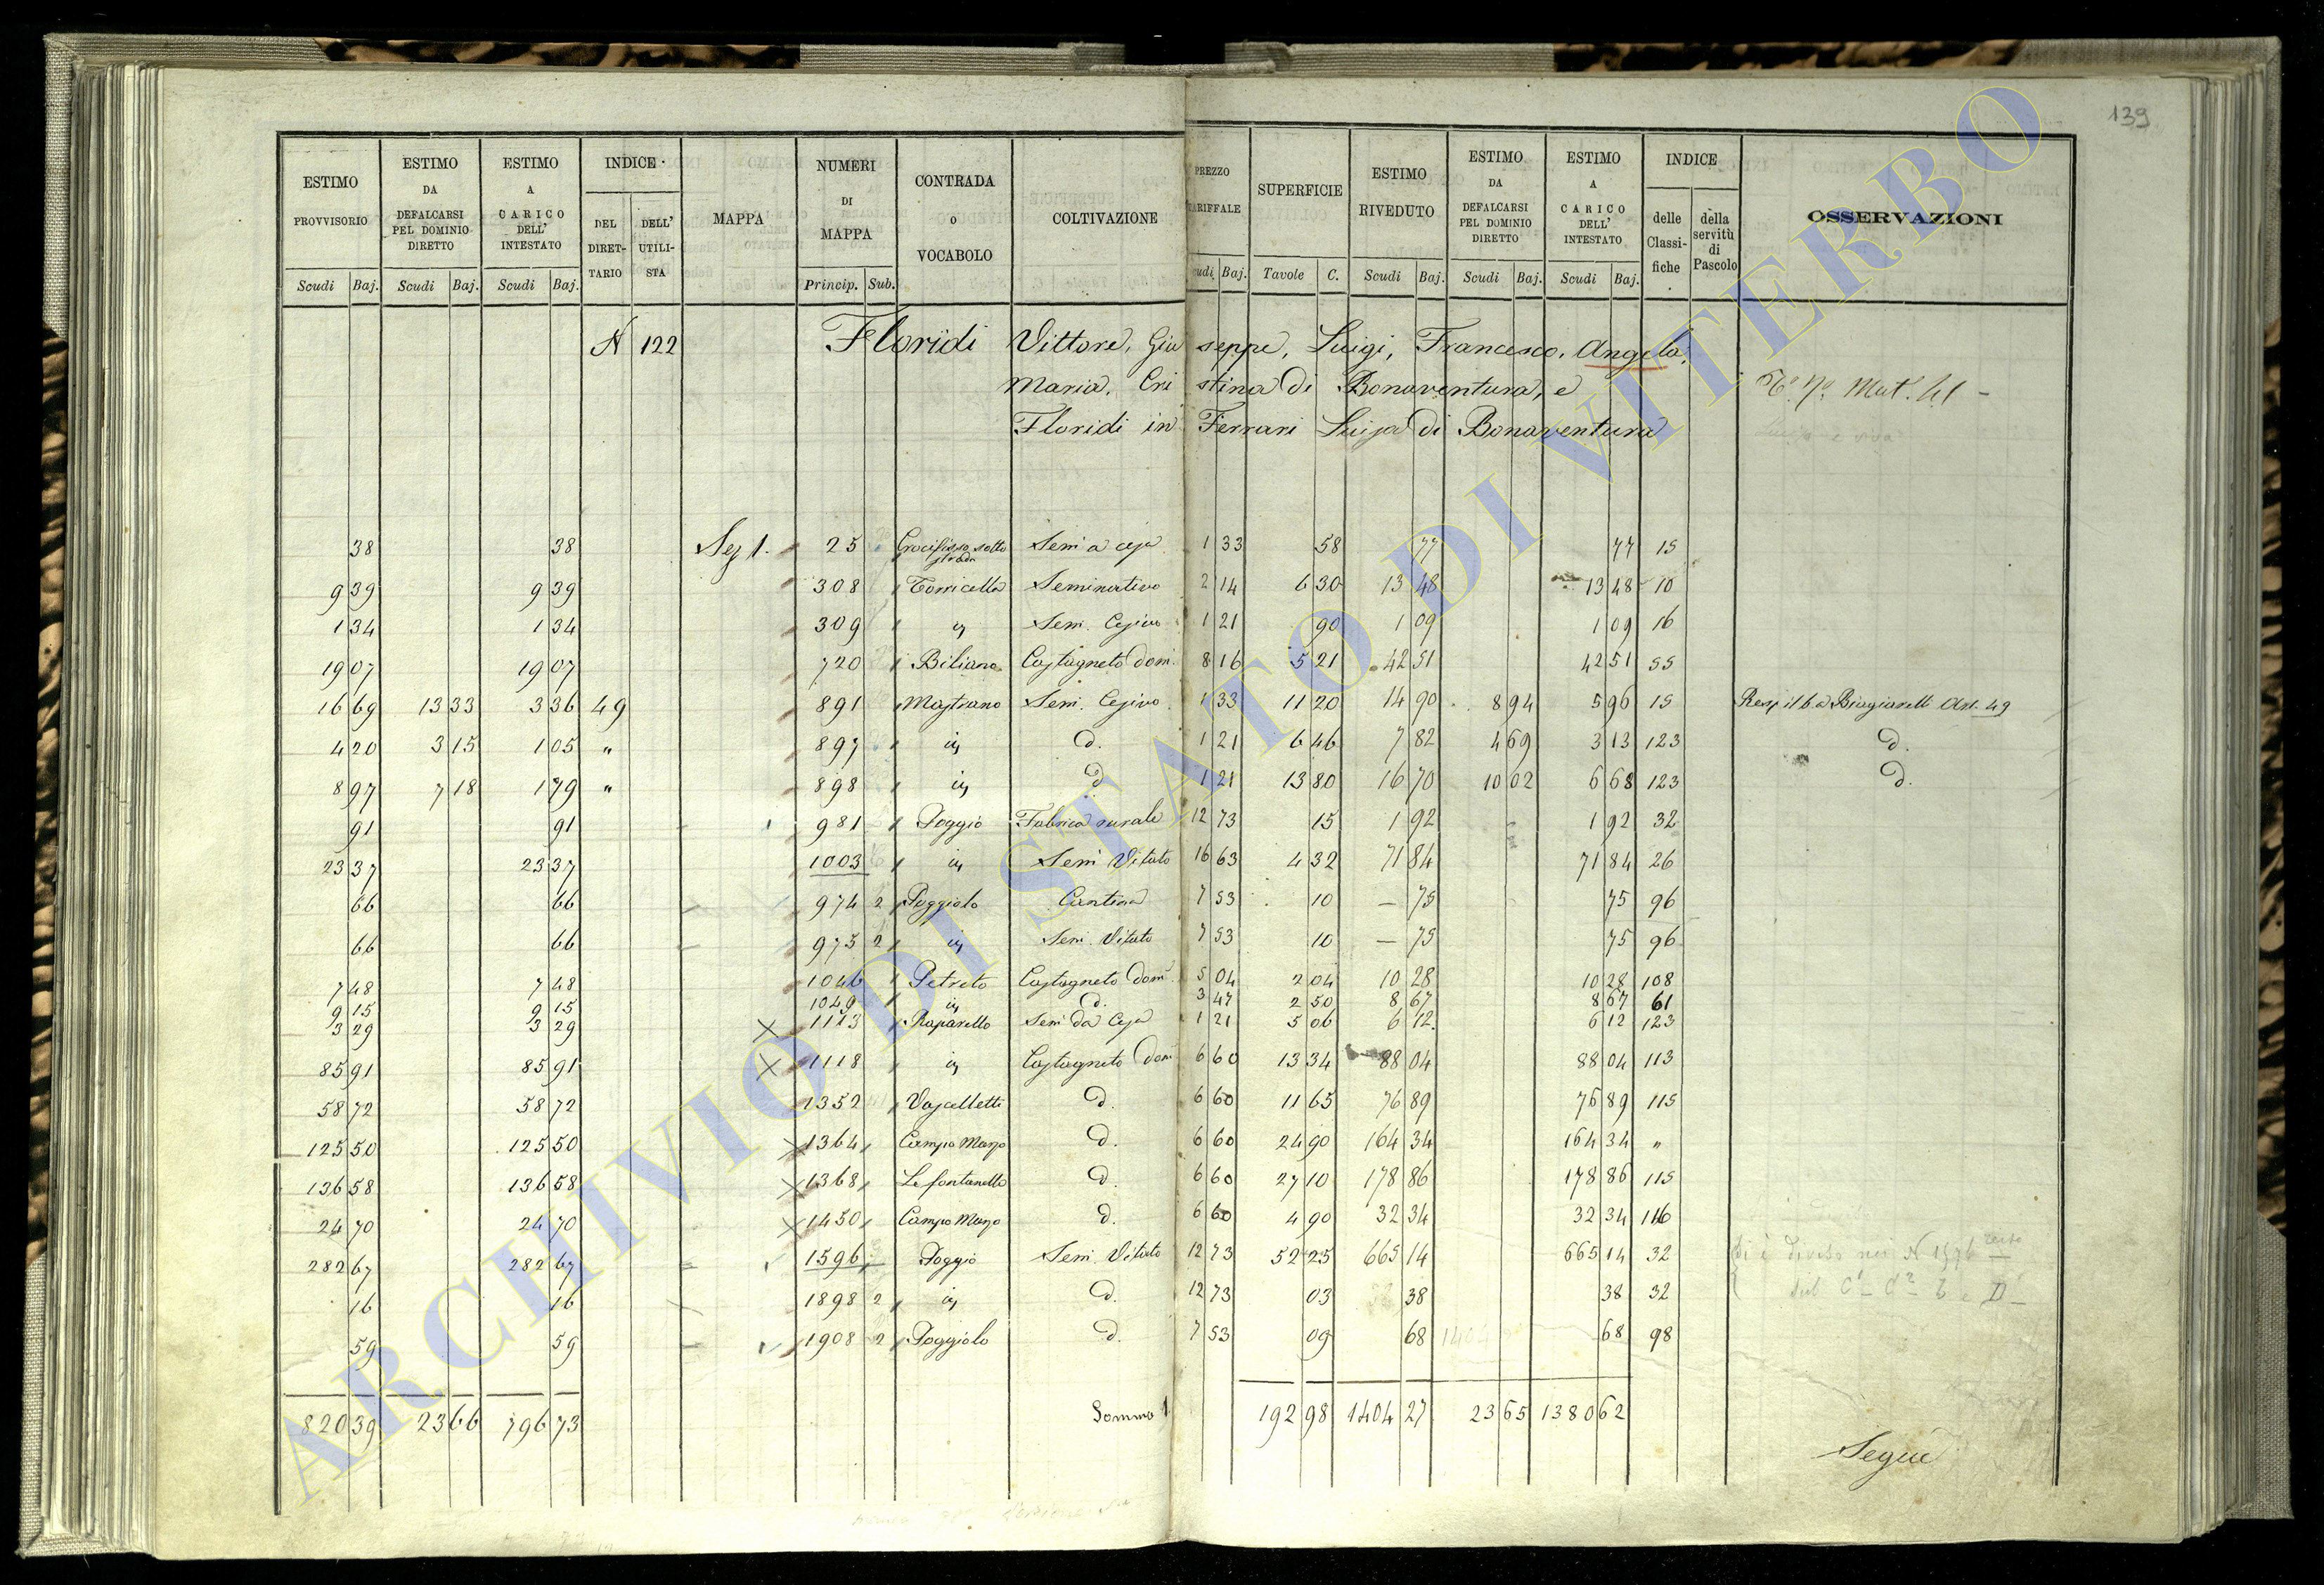 139
ESTIMO PROVVISORIO Scudi Baj. | ESTIMO DA DEFALCARSI PEL DOMINIO DIRETTO Scudi Baj. | ESTIMO A CARICO DELL' INTESTATO Scudi Baj. | INDICE DEL DIRET-TARIO | DELL' UTILI-STA | MAPPA | NUMERI DI MAPPA Princip. Sub. | CONTRADA O VOCABOLO | COLTIVAZIONE | PREZZO TARIFFALE Scudi Baj. | SUPERFICIE Tavole C. | ESTIMO RIVEDUTO Scudi Baj. | ESTIMO DA DEFALCARSI PEL DOMINIO DIRETTO Scudi Baj. | ESTIMO A CARICO DELL' INTESTATO Scudi Baj. | INDICE delle Classi-fiche | della servitù di Pascolo | OSSERVAZIONI
N 122 Floridi Vittore, Giuseppe, Luigi, Francesco, Angela,
Maria, Cristina di Bonaventura, e
Floridi in Ferrari Luisa di Bonaventura
38 38 Sez 1. 25 Crocifisso sotto strada Semi a ceja 1 33 58 77 77 15
9 39 9 39 308 Torricella Seminativo 2 14 6 30 13 48 13 48 10
1 34 1 34 309 id Sem. Cesivo 1 21 90 1 09 1 09 16
19 07 19 07 720 Biliano Castagneto dom. 8 16 5 21 42 51 42 51 55
16 69 13 33 3 36 49 891 Mastrano Sem. Cesivo 1 33 11 20 14 90 8 94 5 96 15 Art. 49
4 20 3 15 1 05 " 897 id d. 1 21 6 46 7 82 4 69 3 13 123 d.
8 97 7 18 1 79 " 898 id d 1 21 13 80 16 70 10 02 6 68 123 d.
91 91 981 Poggio Fabrica rurale 12 73 15 1 92 1 92 32
23 37 23 37 1003 id Sem Vitato 16 63 4 32 71 84 71 84 26
66 66 974 2 Poggiolo Cantina 7 53 10 — 75 75 96
66 66 975 2 id Sem. Vitato 7 53 10 — 75 75 96
7 48 7 48 1046 Petreto Castagneto dom. 5 04 2 04 10 28 10 28 108
9 15 9 15 1049 id d. 3 47 2 50 8 67 8 67 61
3 29 3 29 X 1113 Raparello Sem da Ceja 1 21 5 06 6 12 6 12 123
85 91 85 91 X 1118 id Castagneto dom 6 60 13 34 88 04 88 04 113
58 72 58 72 1352 Vascelletti d. 6 60 11 65 76 89 76 89 115
125 50 125 50 X 1364 Campo Marzo d. 6 60 24 90 164 34 164 34 "
136 58 136 58 X 1368 Le fontanelle d. 6 60 27 10 178 86 178 86 115
24 70 24 70 X 1450 Campo Marzo d. 6 60 4 90 32 34 32 34 116
282 67 282 67 1596 Poggio Sem. Vitato 12 73 52 25 665 14 665 14 32
16 16 1898 2 id d. 12 73 03 38 38 32
59 59 1908 2 Poggiolo d. 7 53 09 68 68 98
820 39 23 66 796 73 Somma 1 192 98 1404 27 23 65 1380 62
Segue
ARCHIVIO DI STATO DI VITERBO